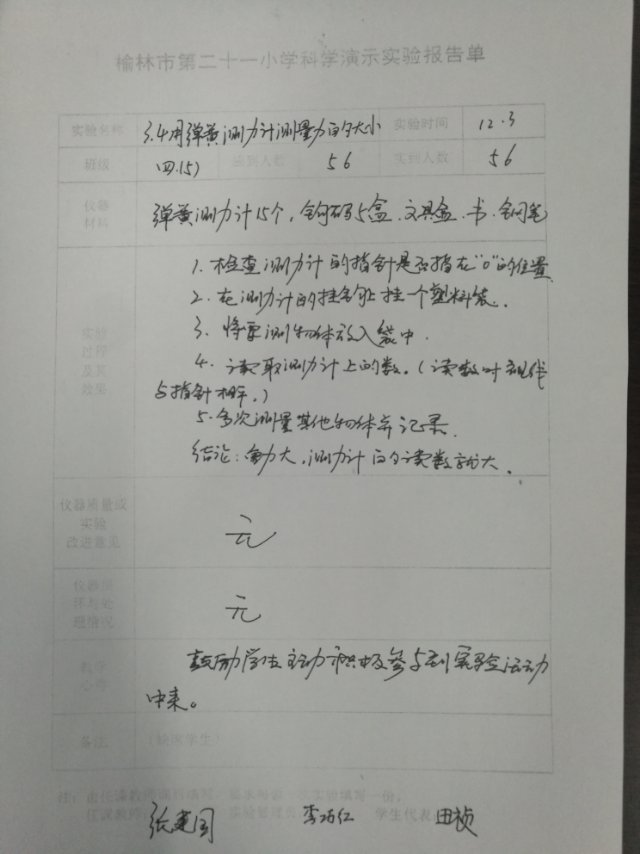 榆林市第二十一小学科学演示实验报告单
实验名称 3.4用弹簧测力计测量力的大小 实验时间 12.3
班级 (四.15) 应到人数 56 实到人数 56
仪器材料 弹簧测力计15个,钩码5盒.文具盒.书.钢笔
实验过程及其效果
1.检查测力计的指针是否指在"0"的位置
2.在测力计的挂钩上挂一个塑料袋.
3.将要测物体放入袋中.
4.读取测力计上的数.(读数时视线
与指针相平.)
5.多次测量其他物体并记录.
结论:力大,测力计的读数就大.
仪器质量或实验改进意见 无
仪器损坏与处理情况 无
教学心得 鼓励学生主动积极参与到实验活动
中来。
备注 (缺席学生)
张建国 李巧红 学生代表 田桢